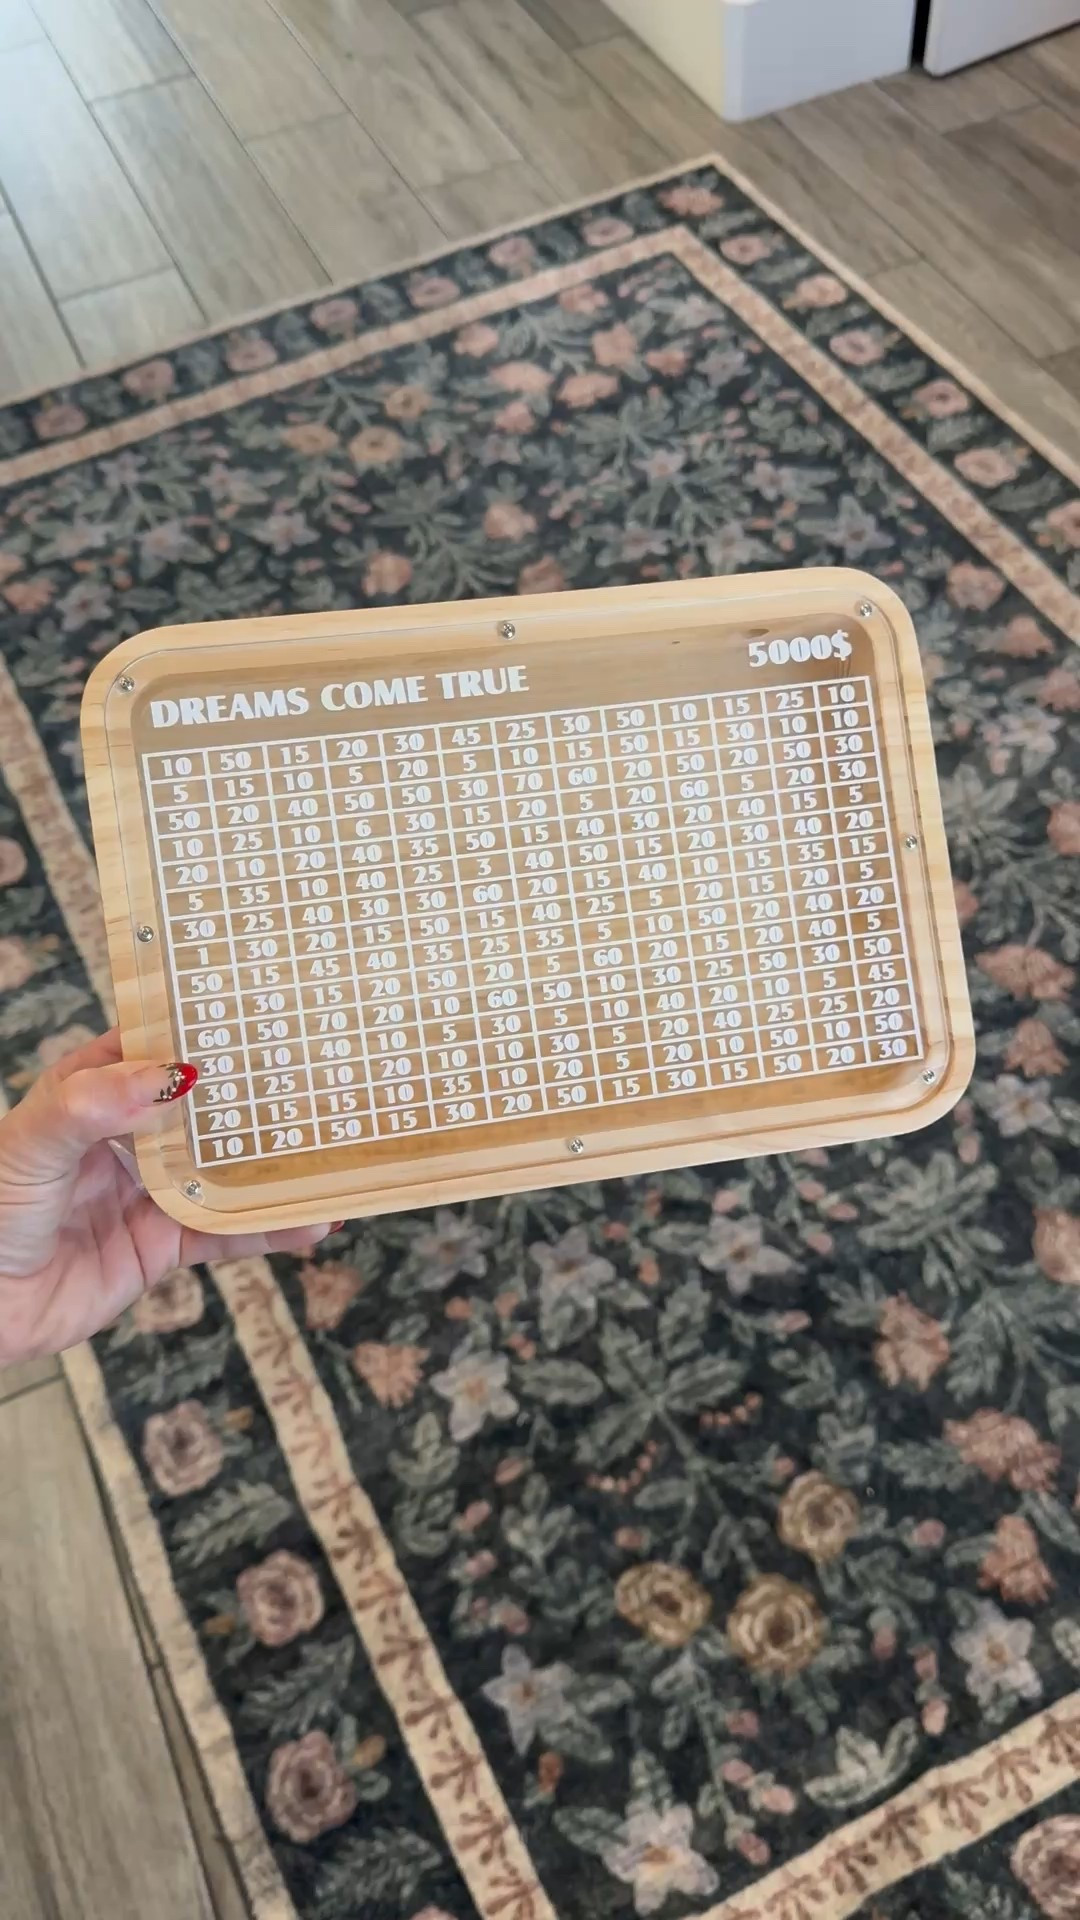 DREAMS COME TRUE 5000$
10 50 15 20 30 45 25 30 50 10 15 25 10
5 15 10 5 20 5 10 15 50 15 30 10 10
50 20 40 50 50 30 70 60 20 50 20 50 30
10 25 10 6 30 15 20 5 20 60 5 20 30
20 10 20 40 35 50 15 40 30 20 40 15 5
5 35 10 40 25 3 40 50 15 20 30 40 20
30 25 40 30 30 60 20 15 40 10 15 35 15
1 30 20 15 50 15 40 25 5 20 15 20 5
50 15 45 40 35 25 35 5 10 50 20 40 20
10 30 15 20 50 20 5 60 20 15 20 40 5
60 50 70 20 10 60 50 10 30 25 50 30 50
30 10 40 10 5 30 5 10 40 20 10 5 45
30 25 10 20 10 10 30 5 20 40 25 25 20
20 15 15 10 35 10 20 5 20 10 50 10 50
10 20 50 15 30 20 50 15 30 15 50 20 30